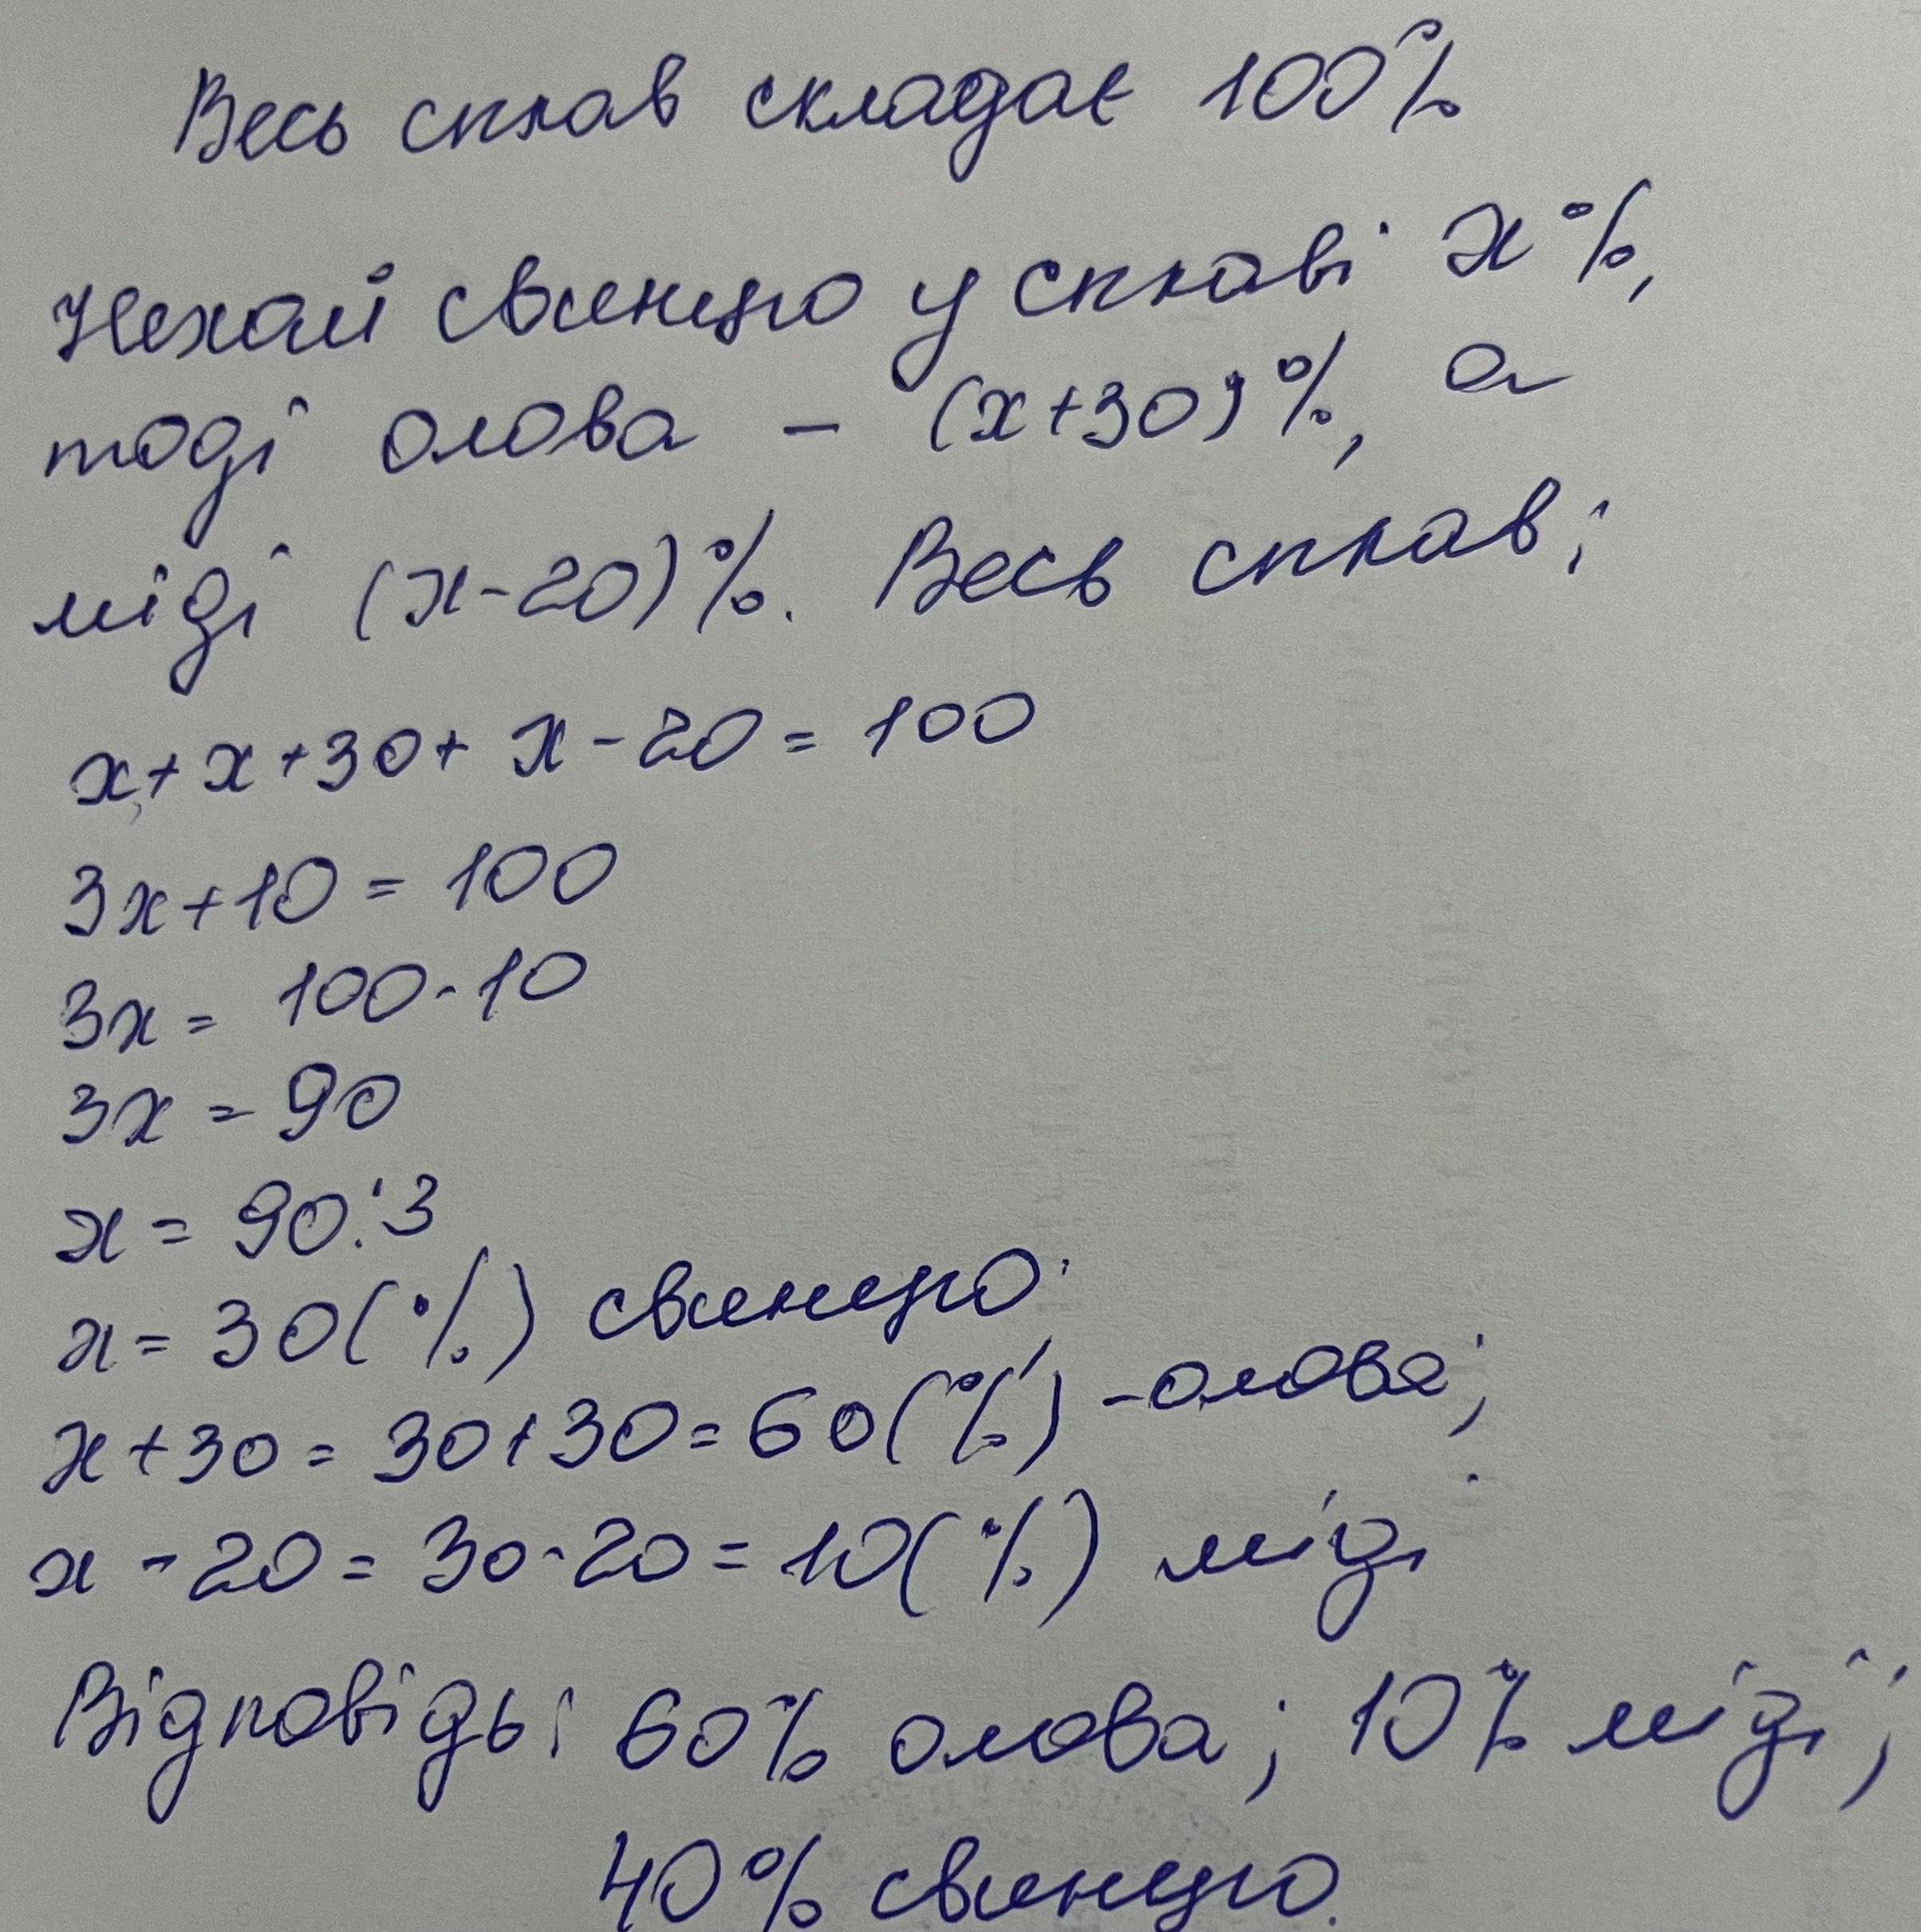 Весь сплав складає 100%
Нехай свинцю у сплаві x%,
тоді олова - (x+30)%, а
міді (x-20)%. Весь сплав:
x+x+30+x-20=100
3x+10=100
3x=100-10
3x=90
x=90:3
x=30(%) свинцю;
x+30=30+30=60(%) - олова;
x-20=30-20=10(%) міді
Відповідь: 60% олова; 10% міді;
40% свинцю.